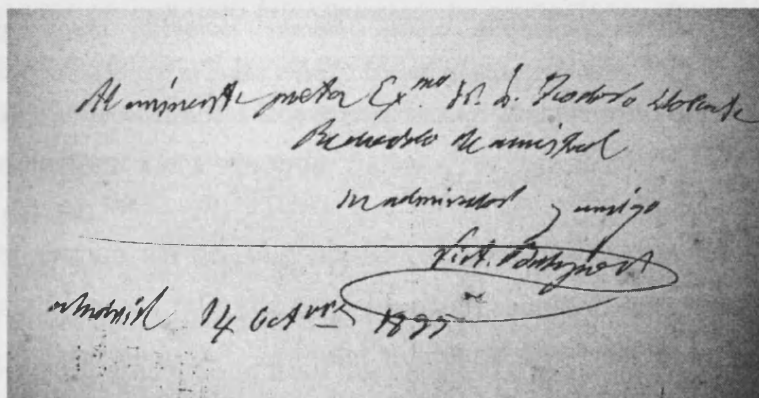 Al eminente poeta Exmo Sr. D. Teodoro Llorente
Recuerdo de amistad
su admirador y amigo
Madrid 14 Octbre 1895